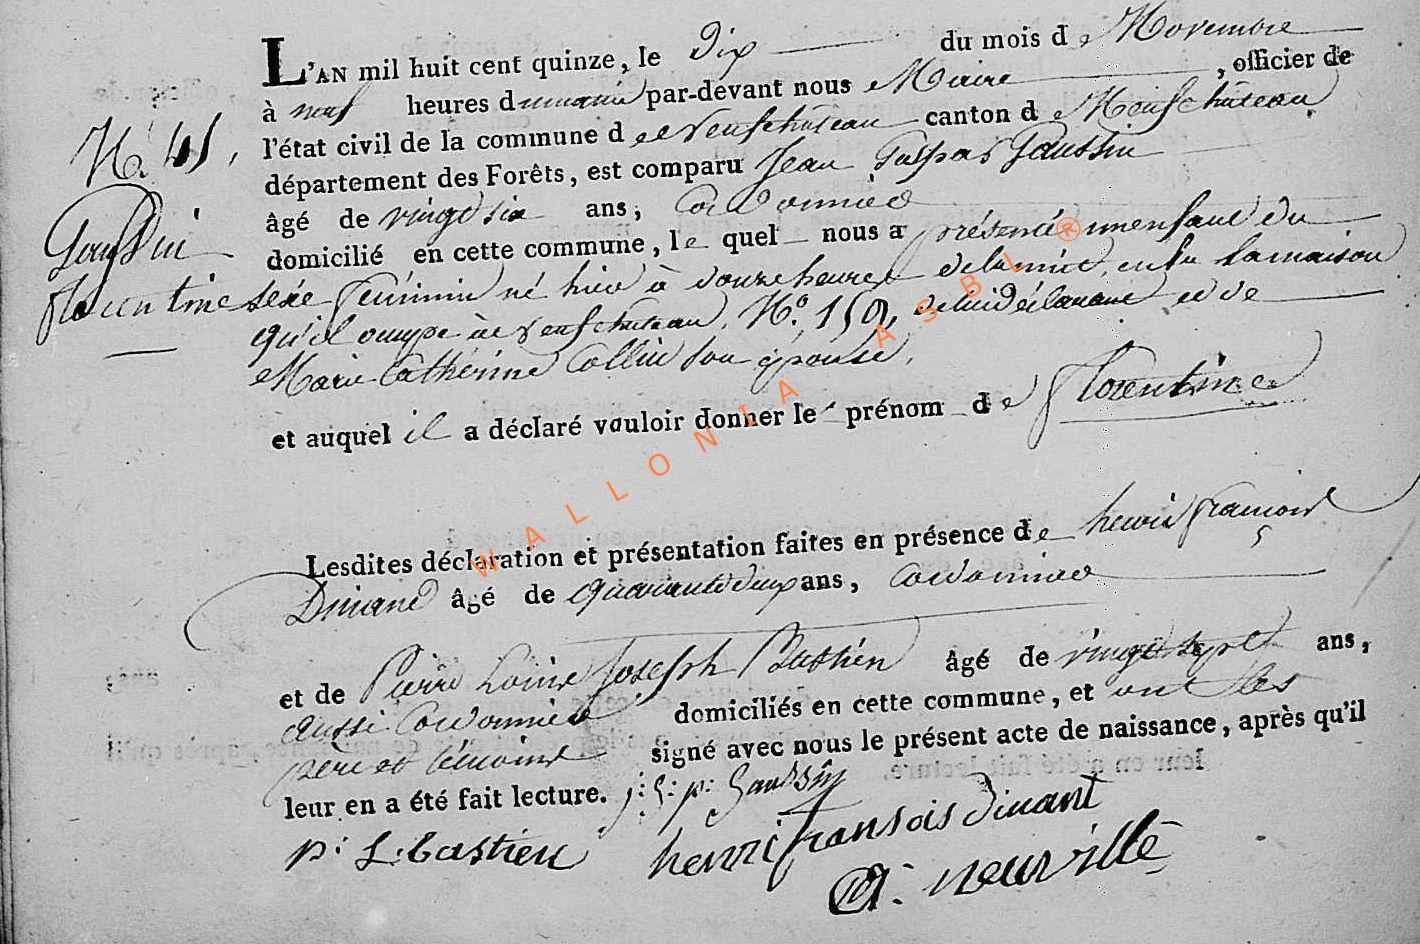 L'AN mil huit cent quinze, le Dix du mois de Novembre
à neuf heures du matin par-devant nous Maire, officier de
l'état civil de la commune de Neufchateau canton de Neufchâteau
département des Forêts, est comparu Jean Gaspar Gaussin
âgé de vingt six ans, Cordonnier
domicilié en cette commune, lequel nous a présenté un enfant du
sexe féminin né hier à onze heures de la nuit, en la maison
qu'il occupe à Neufchateau, N.° 159, de lui déclarant et de
Marie Catherine Collin son épouse,
et auquel il a déclaré vouloir donner le prénom de Florentine
N.° 45,
Gaussin
florentine
Lesdites déclaration et présentation faites en présence de henri françois
Dinant âgé de quarante deux ans, cordonnier
et de Pierre Louis Joseph Bastien âgé de vingt sept ans,
aussi Cordonnier domiciliés en cette commune, et ont les
père et témoins signé avec nous le présent acte de naissance, après qu'il
leur en a été fait lecture. j: g: p: Gaussin
p: L: bastien henri fransois dinant
A. neuville
WALLONIA ASBL ®